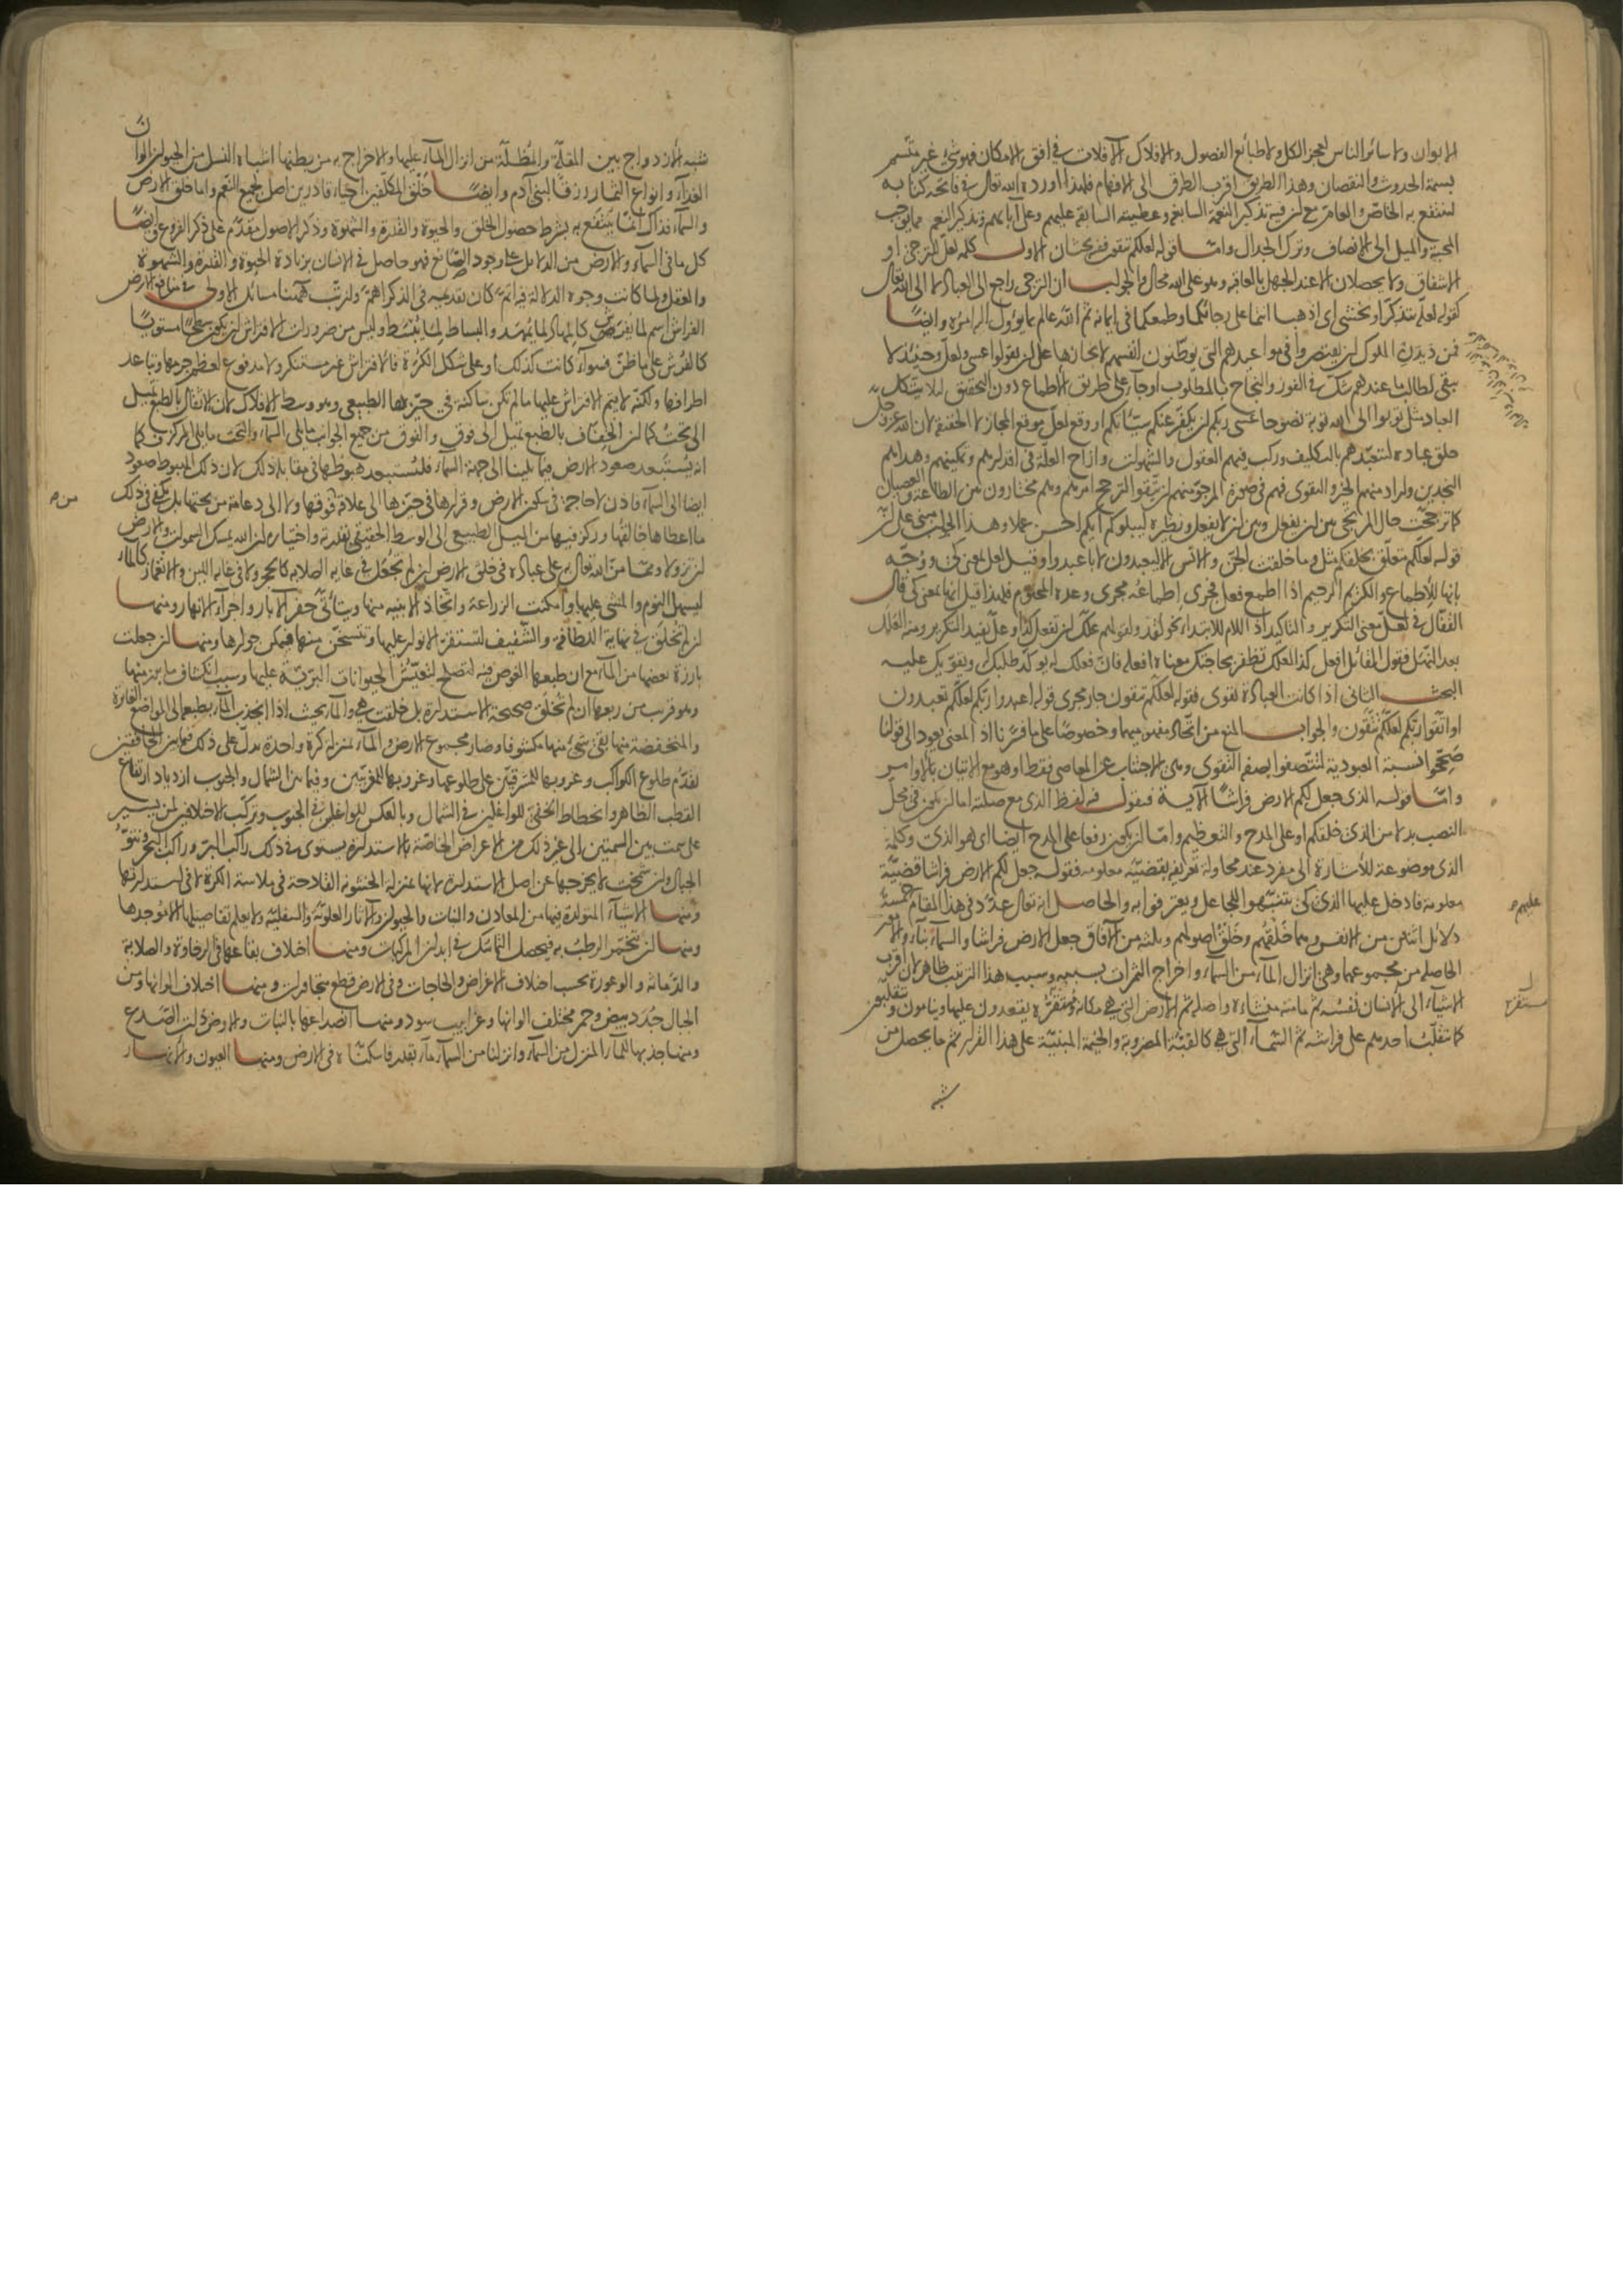 الابوان ولا سائر الناس لعجز الكل ولا طبائع الفصول والافلاك الآفلات في افق الامكان فهو شيء غير متسم
بسمة الحدوث والنقصان وهذا الطريق اقرب الطرق الى الافهام فلهذا اورده الله تعالى في فاتحة كتابه
لينتفع به الخاص والعام مع ان فيه تذكير النعمة السابغة وعطيته السابقة عليهم وعلى آبائهم وتذكير النعم مما يوجب
المحبة والميل الى الانصاف وترك الجدال واما قوله لعلكم تتقون ففيه بحثان الاول كلمة لعل للترجي او
الاشفاق ولا يحصلان الا عند الجهل بالعاقبة وهو على الله محال والجواب ان الترجي راجع الى العباد لا الى الله تعالى
كقوله لعله يتذكر او يخشى اى اذهبا انتما على رجائكما وطمعكما في ايمانه ثم الله عالم بما يؤول اليه امره وايضا
فمن ديدن الملوك ان يقتصروا في مواعيدهم التي يوطنون انفسهم لانجازها على ان يقولوا عسى ولعل وحينئذ لا
يبقى لطالب ما عندهم شك في الفوز والنجاح بالمطلوب او جاء على طريق الاطماع دون التحقيق لئلا يتكل
العباد مثل توبوا الى الله توبة نصوحا عسى ربكم ان يكفر عنكم سيئاتكم او وقع لعل موقع المجاز لا الحقيقة لان الله عز وجل
خلق عباده لتعبدهم بالتكليف وركب فيهم العقول والشهوات وازاح العلة في اقدارهم وتمكينهم وهداهم
النجدين واراد منهم الخير والتقوى فهم في صورة المرجو منهم ان يتقوا لترجح امرهم وهم مختارون بين الطاعة والعصيان
كما ترجحت حال المرتجي بين ان يفعل وبين ان لا يفعل ونظيره ليبلوكم ايكم احسن عملا وهذا الجواب مبني على ان
قوله لعلكم متعلق بخلقكم مثل وما خلقت الجن والانس الا ليعبدون لا باعبدوا وقيل لعل بمعنى كي ووجه
بانها للاطماع والكريم الرحيم اذا اطمع فعل فجرى اطماعه مجرى وعده المحتوم فلهذا قيل انها بمعنى كي قال
القفال في لعل معنى التكرير والتاكيد اذ اللام للابتداء نحو لقد وقولهم علك ان تفعل كذا وعل يفيد التكرير ومنه العلل
بعد النهل فقول القائل افعل كذا لعلك تظفر بحاجتك معناه افعله فان فعلك له يؤكد طلبك له ويقويك عليه
البحث الثاني اذا كانت العبادة تقوى فقوله لعلكم تتقون جار مجرى قوله اعبدوا ربكم لعلكم تعبدون
او اتقوا ربكم لعلكم تتقون والجواب المنع من اتحاد مفهوميهما وخصوصا على ما فسرنا اذ المعنى يعود الى قولنا
صححوا نسبة العبودية لتتصفوا بصفة التقوى وهي الاجتناب عن المعاصي فقط او هو مع الاتيان بالاوامر
واما قوله الذي جعل لكم الارض فراشا الآية فنقول فيه لفظ الذي مع صلته اما ان يكون في محل
النصب بدلا من الذي خلقكم او على المدح والتعظيم واما ان يكون رفعا على المدح ايضا اى هو الذي وكلمة
الذي موضوعة للاشارة الى مفرد عند محاولة تعريفه بقضية معلومة فقوله جعل لكم الارض فراشا قضية
معلومة فادخل عليها الذي كي يتنبهوا للجاعل ويعترفوا به والحاصل انه تعالى عدد في هذا المقام عليهم خمسة
دلائل اثنين من الانفس وهما خلقهم وخلق اصولهم وثلثة من الآفاق جعل الارض فراشا والسماء بناء والامور
الحاصلة من مجموعهما وهي انزال الماء من السماء واخراج الثمرات بسببه وسبب هذا الترتيب ظاهر لان اقرب
الاشياء الى الانسان نفسه ثم ما منه منشاؤه واصله ثم الارض التي هي مكانه ومستقره يقعدون عليها وينامون ويتقلبون
كما يتقلب احدهم على فراشه ثم السماء التي هي كالقبة المضروبة والخيمة المبنية على هذا القرار ثم ما يحصل من
شبه
شبه الازدواج بين المقلة والمظلة من انزال الماء عليها والاخراج به من بطنها اشباه النسل من الحيوان الوان
الغذاء وانواع الثمار رزقا لبني آدم وايضا خلق المكلفين احياء قادرين اصل لجميع النعم واما خلق الارض
والسماء فذاك انما ينتفع به بشرط حصول الخلق والحيوة والقدرة والشهوة وذكر الاصول مقدم على ذكر الفروع وايضا
كل ما في السماء والارض من الدلائل على وجود الصانع فهو حاصل في الانسان بزيادة الحيوة والقدرة والشهوة
والعقل ولما كانت وجوه الدلالة فيه اتم كان تقديمه في الذكر اهم ولنرتب ههنا مسائل الاولى في منافع الارض
الفراش اسم لما يفترش كالمهاد لما يمهد والبساط لما يبسط وليس من ضرورات الافتراش ان يكون سطحا مستويا
كالفرش على ما ظن فسواء كانت كذلك او على شكل الكرة فالافتراش غير مستنكر ولا مدفوع لعظم جرمها وتباعد
اطرافها ولكنه لا يتم الافتراش عليها ما لم تكن ساكنة في حيزها الطبيعي وهو وسط الافلاك لان الاثقال بالطبع تميل
الى تحت كما ان الخفاف بالطبع تميل الى فوق والفوق من جميع الجوانب ما يلي السماء والتحت ما يلي المركز فكما
انه يستبعد صعود الارض فيما يلينا الى جهة السماء فليستبعد هبوطها في مقابلة ذلك لان ذلك الهبوط صعود
ايضا الى السماء فاذن لا حاجة في سكون الارض وقرارها في حيزها الى علاقة من فوقها ولا الى دعامة من تحتها بل يكفي في ذلك
ما اعطاها خالقها وركز فيها من الميل الطبيعي الى الوسط الحقيقي بقدرته واختياره ان الله يمسك السموات والارض
ان تزولا ومما من الله تعالى به على عباده في خلق الارض ان لم تجعل في غاية الصلابة كالحجر ولا في غاية اللين والانغماز كالماء
ليسهل النوم والمشي عليها وامكنت الزراعة واتخاذ الابنية منها ويتأتى حفر الآبار واجراء الانهار ومنها
ان لم تخلق في نهاية اللطافة والشفيف لتستقر الانوار عليها وتتسخن منها فيمكن جوارها ومنها ان جعلت
بارزة بعضها من الماء مع ان طبعها الغوص فيه لتصلح لتعيش الحيوانات البرية عليها وسبب انكشاف ما برز منها
وهو قريب من ربعها ان لم تخلق صحيحة الاستدارة بل خلقت هي والماء بحيث اذا انجذب الماء بطبعه الى المواضع الغائرة
والمنخفضة منها بقي شيء منها مكشوفا وصار مجموع الارض والماء بمنزلة كرة واحدة يدل على ذلك فيما بين الخافقين
تقدم طلوع الكواكب وغروبها للمشرقيين على طلوعها وغروبها للمغربيين وفيما بين الشمال والجنوب ازدياد ارتفاع
القطب الظاهر وانحطاط الخفي للواغلين في الشمال وبالعكس للواغلين في الجنوب وتركب الاختلافين لمن يسير
على سمت بين السمتين الى غير ذلك من الاعراض الخاصة بالاستدارة يستوى في ذلك راكب البر وراكب البحر ونتوء
الجبال وان شمخت لا يخرجها عن اصل الاستدارة لانها بمنزلة الخشونة القادحة في ملاسة الكرة لا في استدارتها
ومنها الاشياء المتولدة فيها من المعادن والنبات والحيوان والآثار العلوية والسفلية ولا يعلم تفاصيلها الا موجدها
ومنها ان يتخمر الرطب به فيحصل التماسك في ابدان المركبات ومنها اختلاف بقاعها في الرخاوة والصلابة
والدماثة والوعورة بحسب اختلاف الاغراض والحاجات وفي الارض قطع متجاورات ومنها اختلاف الوانها ومن
الجبال جدد بيض وحمر مختلف الوانها وغرابيب سود ومنها انصداعها بالنبات والارض ذات الصدع
ومنها جذبها للماء المنزل من السماء وانزلنا من السماء ماء بقدر فاسكناه في الارض ومنها العيون والانهار